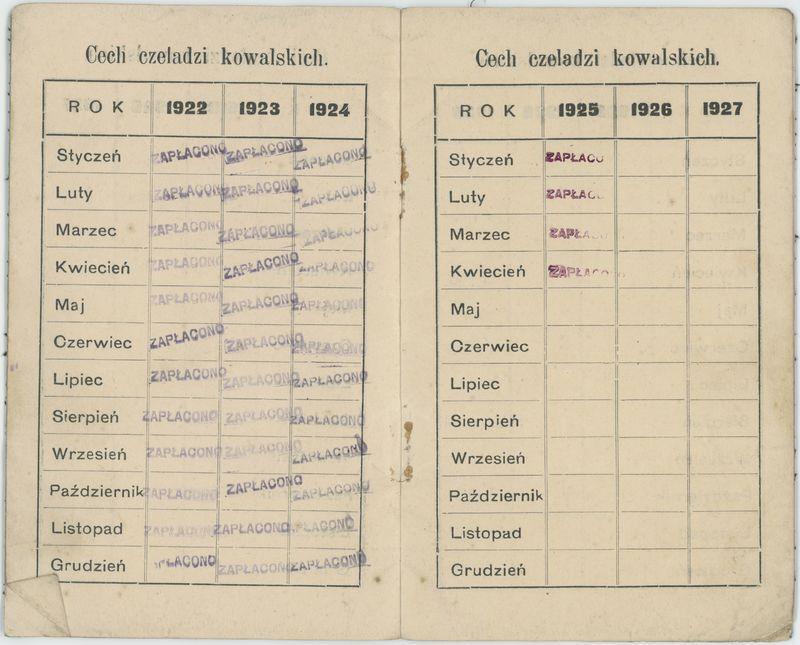 Cech czeladzi kowalskich.
ROK 1922 1923 1924
Styczeń ZAPŁACONO ZAPŁACONO ZAPŁACONO
Luty ZAPŁACONO ZAPŁACONO ZAPŁACONO
Marzec ZAPŁACONO ZAPŁACONO ZAPŁACONO
Kwiecień ZAPŁACONO ZAPŁACONO ZAPŁACONO
Maj ZAPŁACONO ZAPŁACONO ZAPŁACONO
Czerwiec ZAPŁACONO ZAPŁACONO ZAPŁACONO
Lipiec ZAPŁACONO ZAPŁACONO ZAPŁACONO
Sierpień ZAPŁACONO ZAPŁACONO ZAPŁACONO
Wrzesień ZAPŁACONO ZAPŁACONO ZAPŁACONO
Październik ZAPŁACONO ZAPŁACONO ZAPŁACONO
Listopad ZAPŁACONO ZAPŁACONO ZAPŁACONO
Grudzień ZAPŁACONO ZAPŁACONO ZAPŁACONO
Cech czeladzi kowalskich.
ROK 1925 1926 1927
Styczeń ZAPŁACO
Luty ZAPŁACO
Marzec ZAPŁACO
Kwiecień ZAPŁACONO
Maj
Czerwiec
Lipiec
Sierpień
Wrzesień
Październik
Listopad
Grudzień